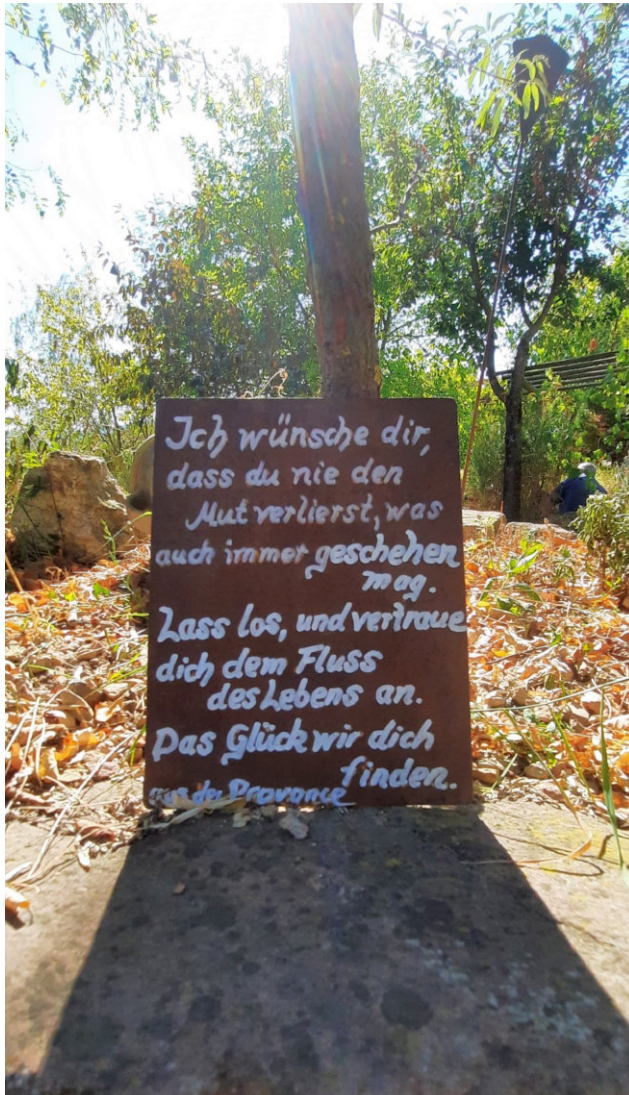 Ich wünsche dir,
dass du nie den
Mut verlierst, was
auch immer geschehen
mag.
Lass los, und vertraue
dich dem Fluss
des Lebens an.
Das Glück wir dich
finden.
aus der Provance